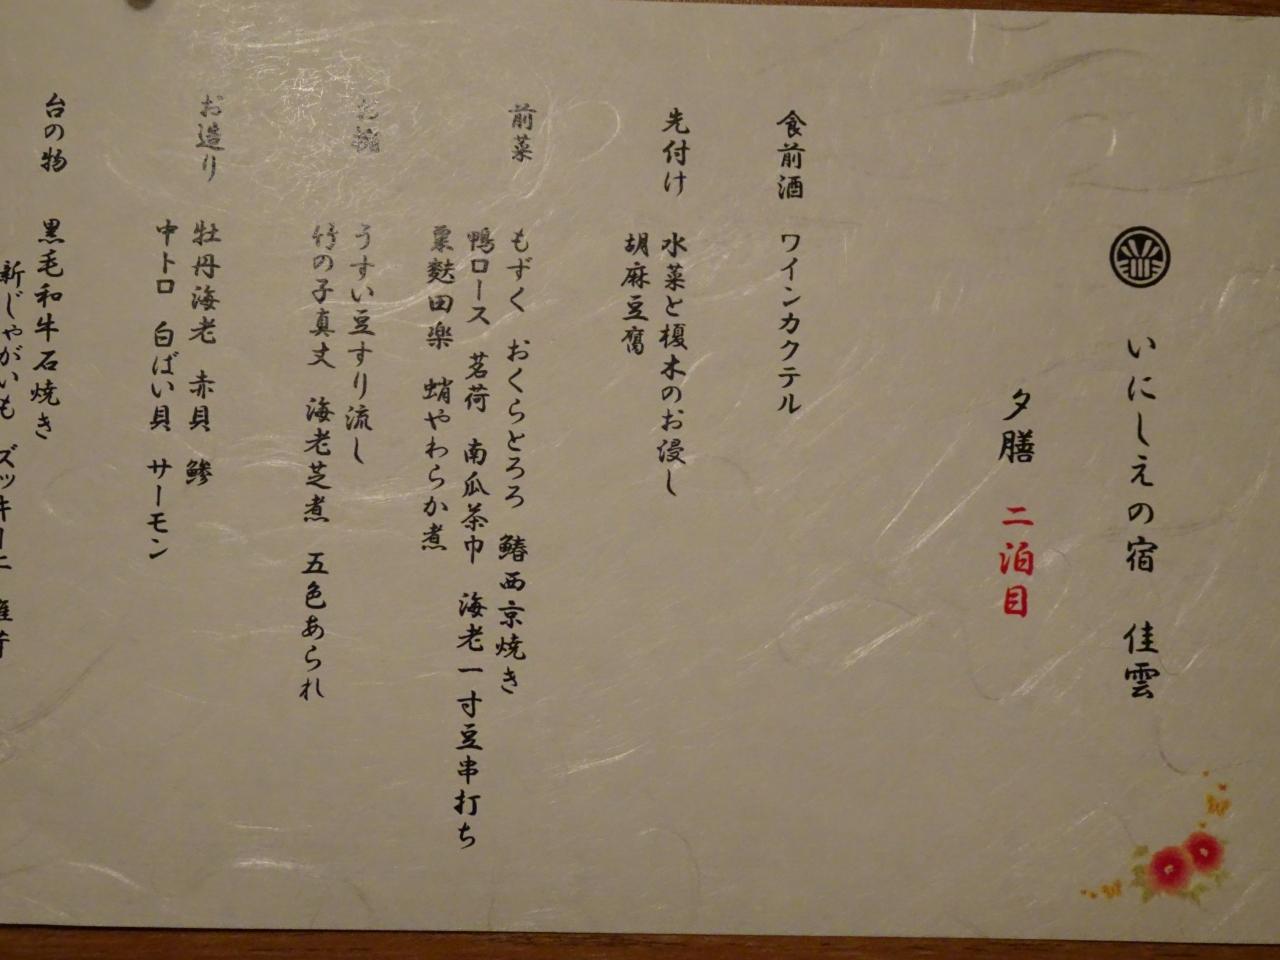 いにしえの宿 佳雲
夕膳 二泊目
食前酒 ワインカクテル
先付け 水菜と榎木のお浸し
胡麻豆腐
前菜 もずく おくらとろろ 鰆西京焼き
鴨ロース 茗荷 南瓜茶巾 海老一寸豆串打ち
粟麩田楽 蛸やわらか煮
お椀 うすい豆すり流し
竹の子真丈 海老芝煮 五色あられ
お造り 牡丹海老 赤貝 鯵
中トロ 白ばい貝 サーモン
台の物 黒毛和牛石焼き
新じゃがいも ズッキーニ